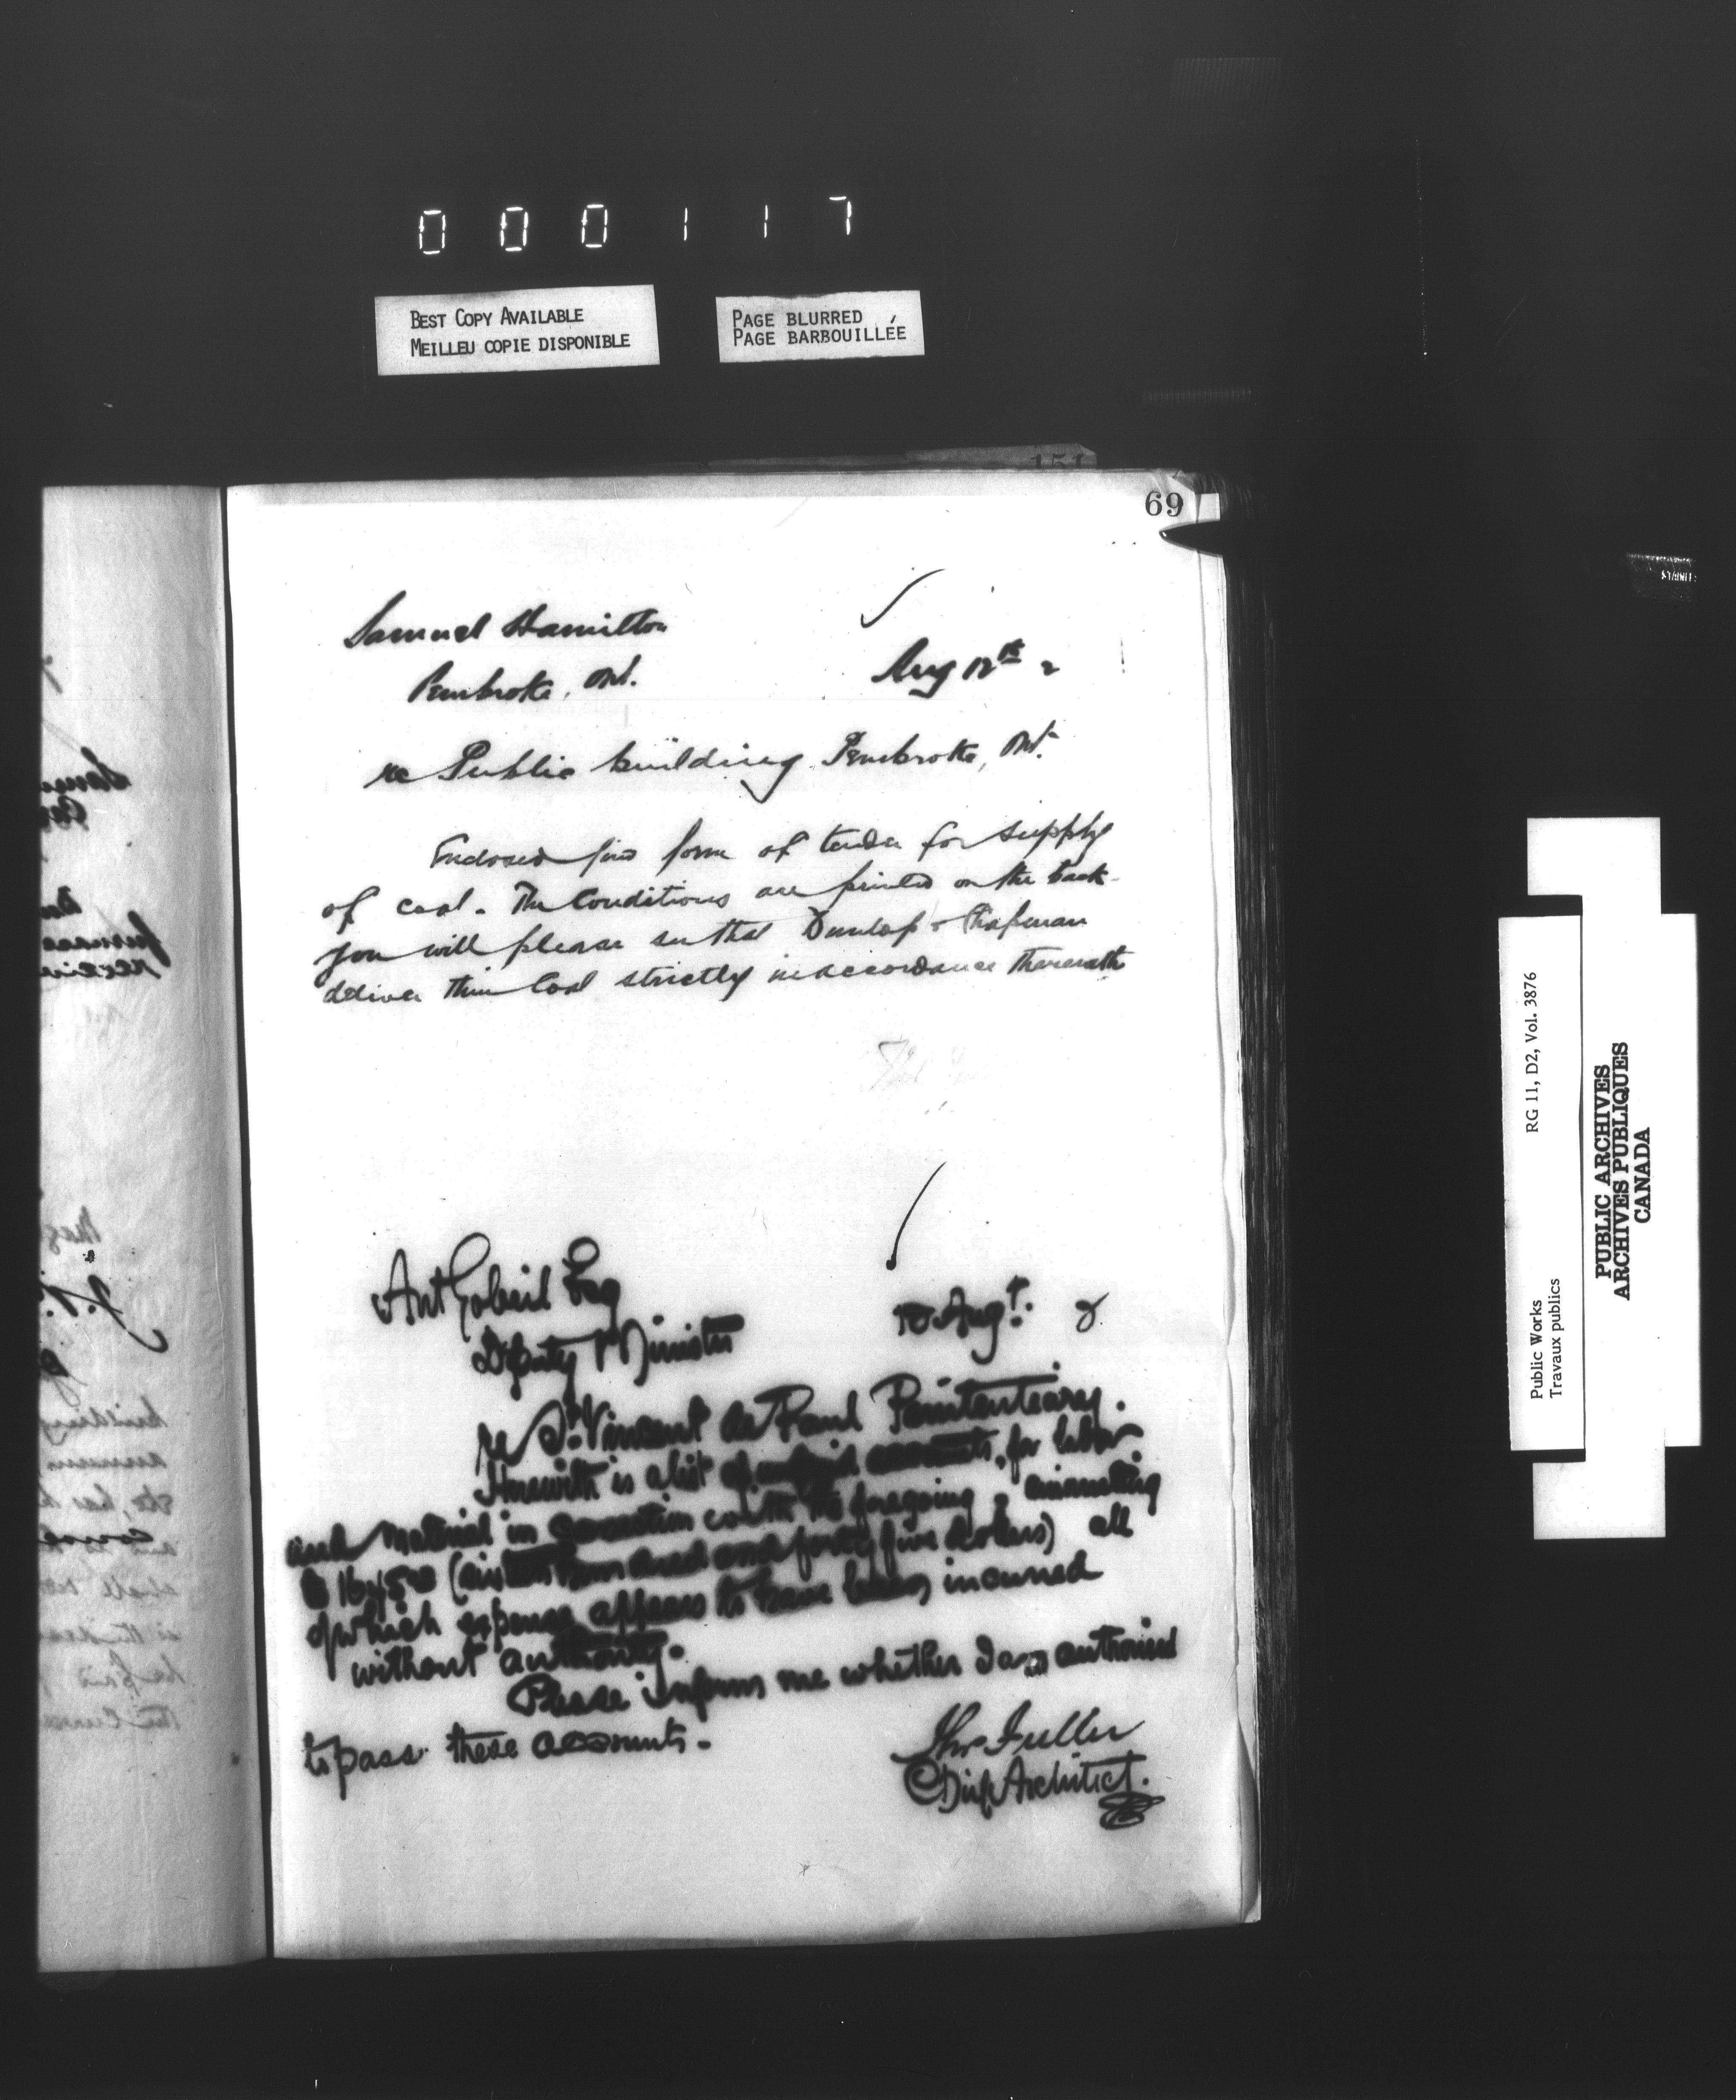 000117
BEST COPY AVAILABLE
MEILLEU COPIE DISPONIBLE
PAGE BLURRED
PAGE BARBOUILLÉE
151
69
Samuel Hamilton
Pembroke, Ont.
Aug 12th 2
re Public building Pembroke, Ont.
Enclosed find form of tender for supply
of coal. The Conditions are printed on the back.
You will please see that Dunlop & Chapman
deliver their Coal strictly in accordance therewith
Ant Gobeil Esq
Deputy Minister
Augt. 2
re St. Vincent de Paul Penitentiary.
Herewith is a list of accounts, for labor
and material in connection with the foregoing, amounting
to 1645.00 (sixteen hundred and forty five dollars) all
of which expense appears to have been incurred
without authority.
Please inform me whether I am authorised
to pass these accounts.
Thos Fuller
Chief Architect.
RG 11, D2, Vol. 3876
Public Works
Travaux publics
PUBLIC ARCHIVES
ARCHIVES PUBLIQUES
CANADA